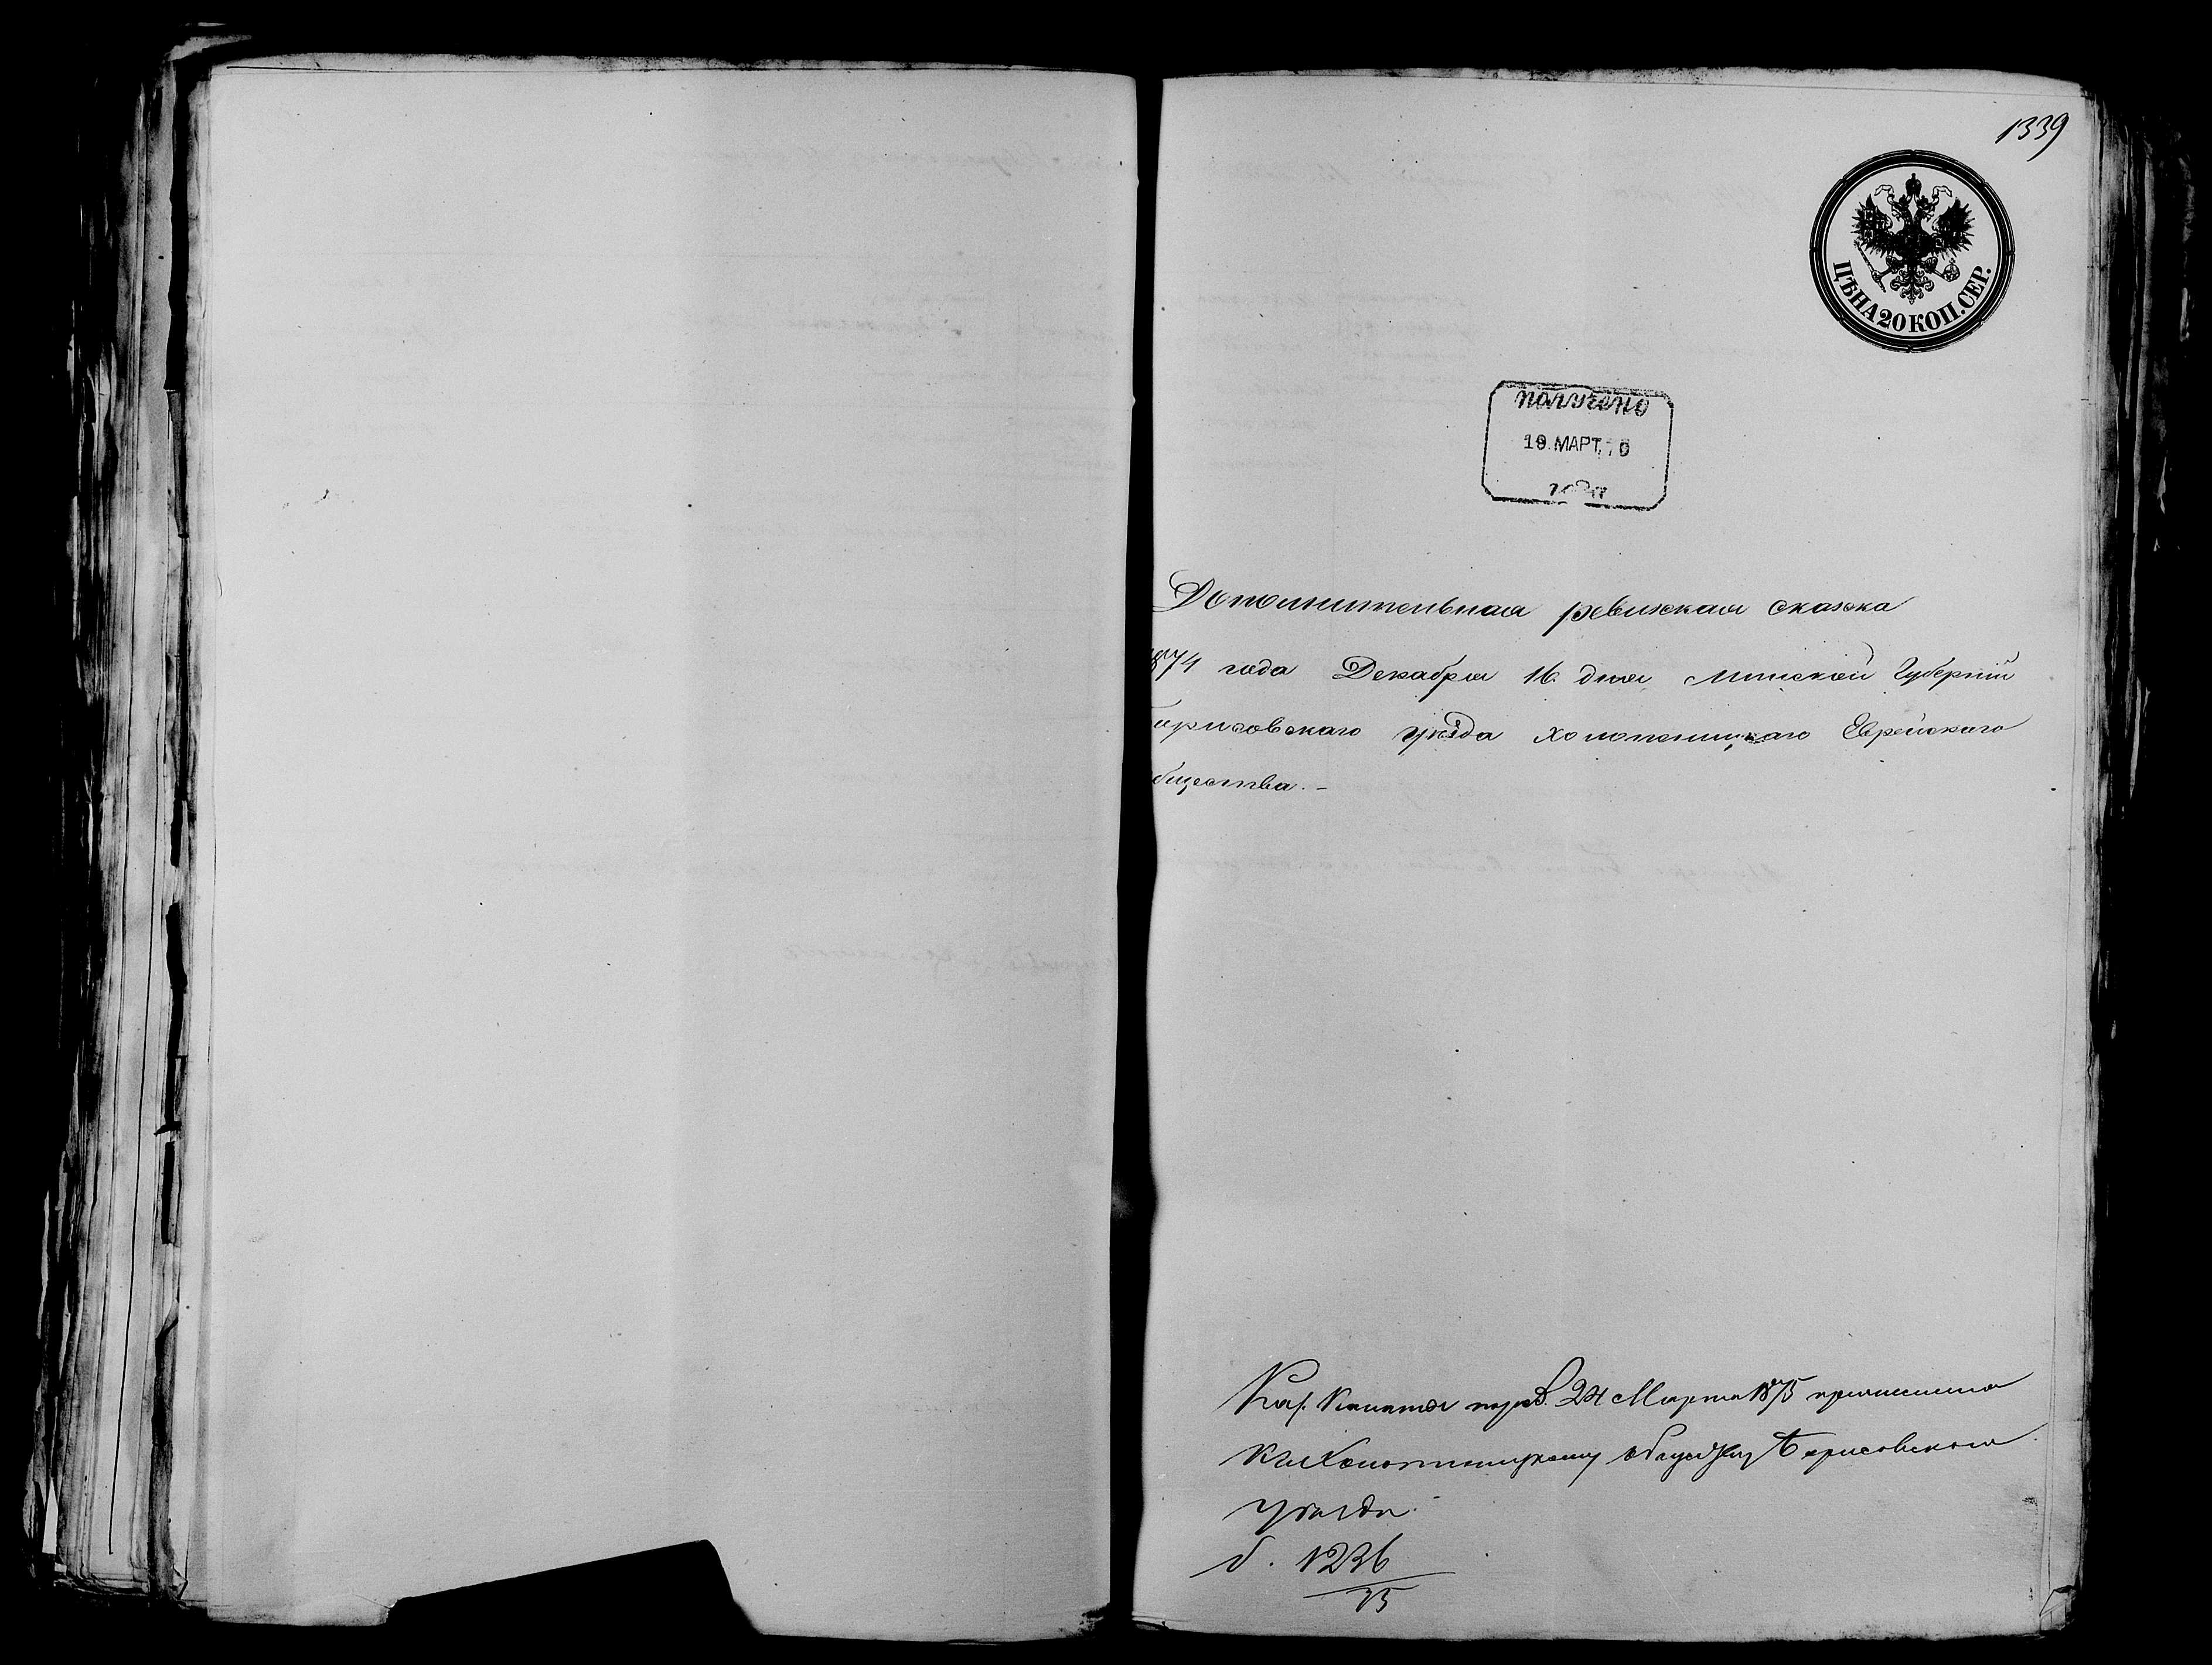 1339
ЦѢНА 20 КОП. СЕР.
ПОЛУЧЕНО
19. МАРТ.
Дополнительная ревизская сказка
1874 года Декабря 16 дня Минской Губерніи
Борисовскаго уѣзда Холопеницкаго Еврейскаго
общества. –
24 Марта 1875
къ Холопеницкому обществу Борисовскаго
уѣзда.
д. 1236
75